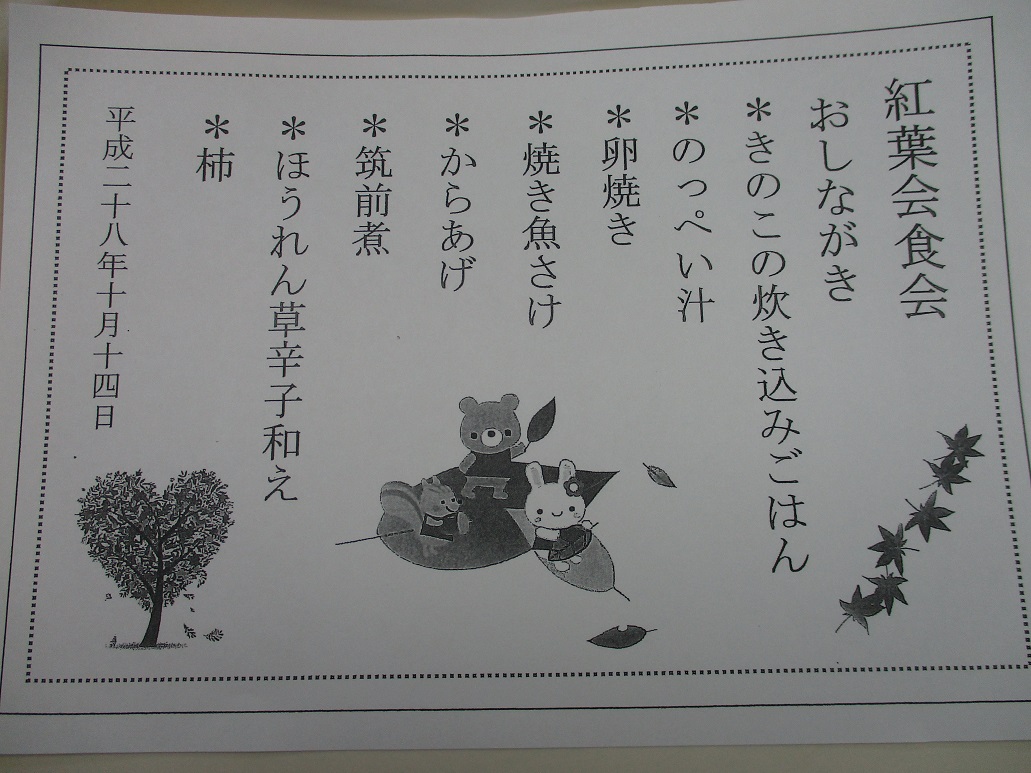 紅葉会食会
おしながき
＊きのこの炊き込みごはん
＊のっぺい汁
＊卵焼き
＊焼き魚さけ
＊からあげ
＊筑前煮
＊ほうれん草辛子和え
＊柿
平成二十八年十月十四日